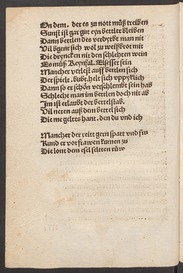 On dem. der es zu nott muß treiben
Sunst ist gar gut eyn bettler bleiben
Dann bettlen des verdyrbt man nit
Vil bgent sich wol zu weißbrot mit
Die drincken nit den schlehten wein
Es muß Reynfal. Elsesser sein
Mancher verleßt auff bettlen sich
Der spielt. bubt. helt sich uppyklich
Dann so er schon verschlembt sein hab
Schlecht man im bettlen doch nit ab
Im ist erlaubt der bettelstab
Vil neren auß dem bettel sich
Die me gelts hant. den du und ich
Mancher der reitt gern spatt und fru
Kund er vor frawen kumen zu
Die lont dem esel selten ruw